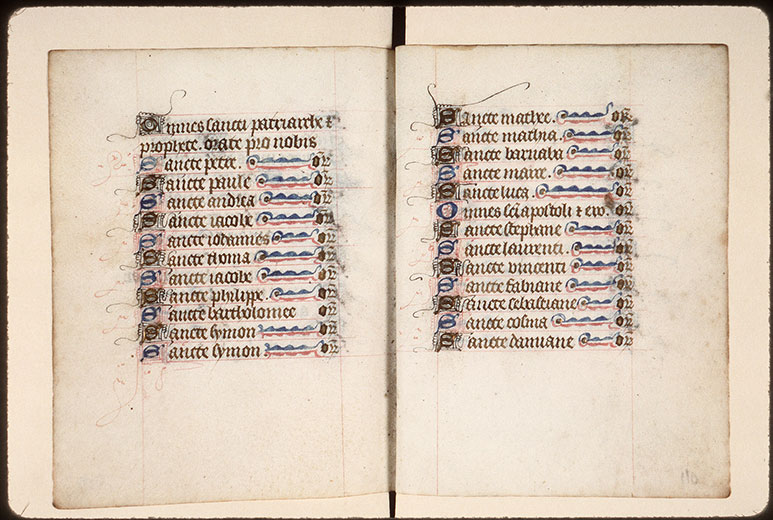 Omnes sancti patriarche &
prophete. orate pro nobis
Sancte petre. or
Sancte paule or
Sancte andrea or
Sancte iacobe or
Sancte iohannes or
Sancte thoma or
Sancte iacobe or
Sancte philippe. or
Sancte bartholomee or
Sancte symon or
Sancte symon or
Sancte mathee. or
Sancte mathia. or
Sancte barnaba or
Sancte marce. or
Sancte luca. or
Omnes sci apostoli & ew. or
Sancte stephane or
Sancte laurenti. or
Sancte vincenti or
Sancte fabiane or
Sancte sebastiane or
Sancte cosma or
Sancte damiane or